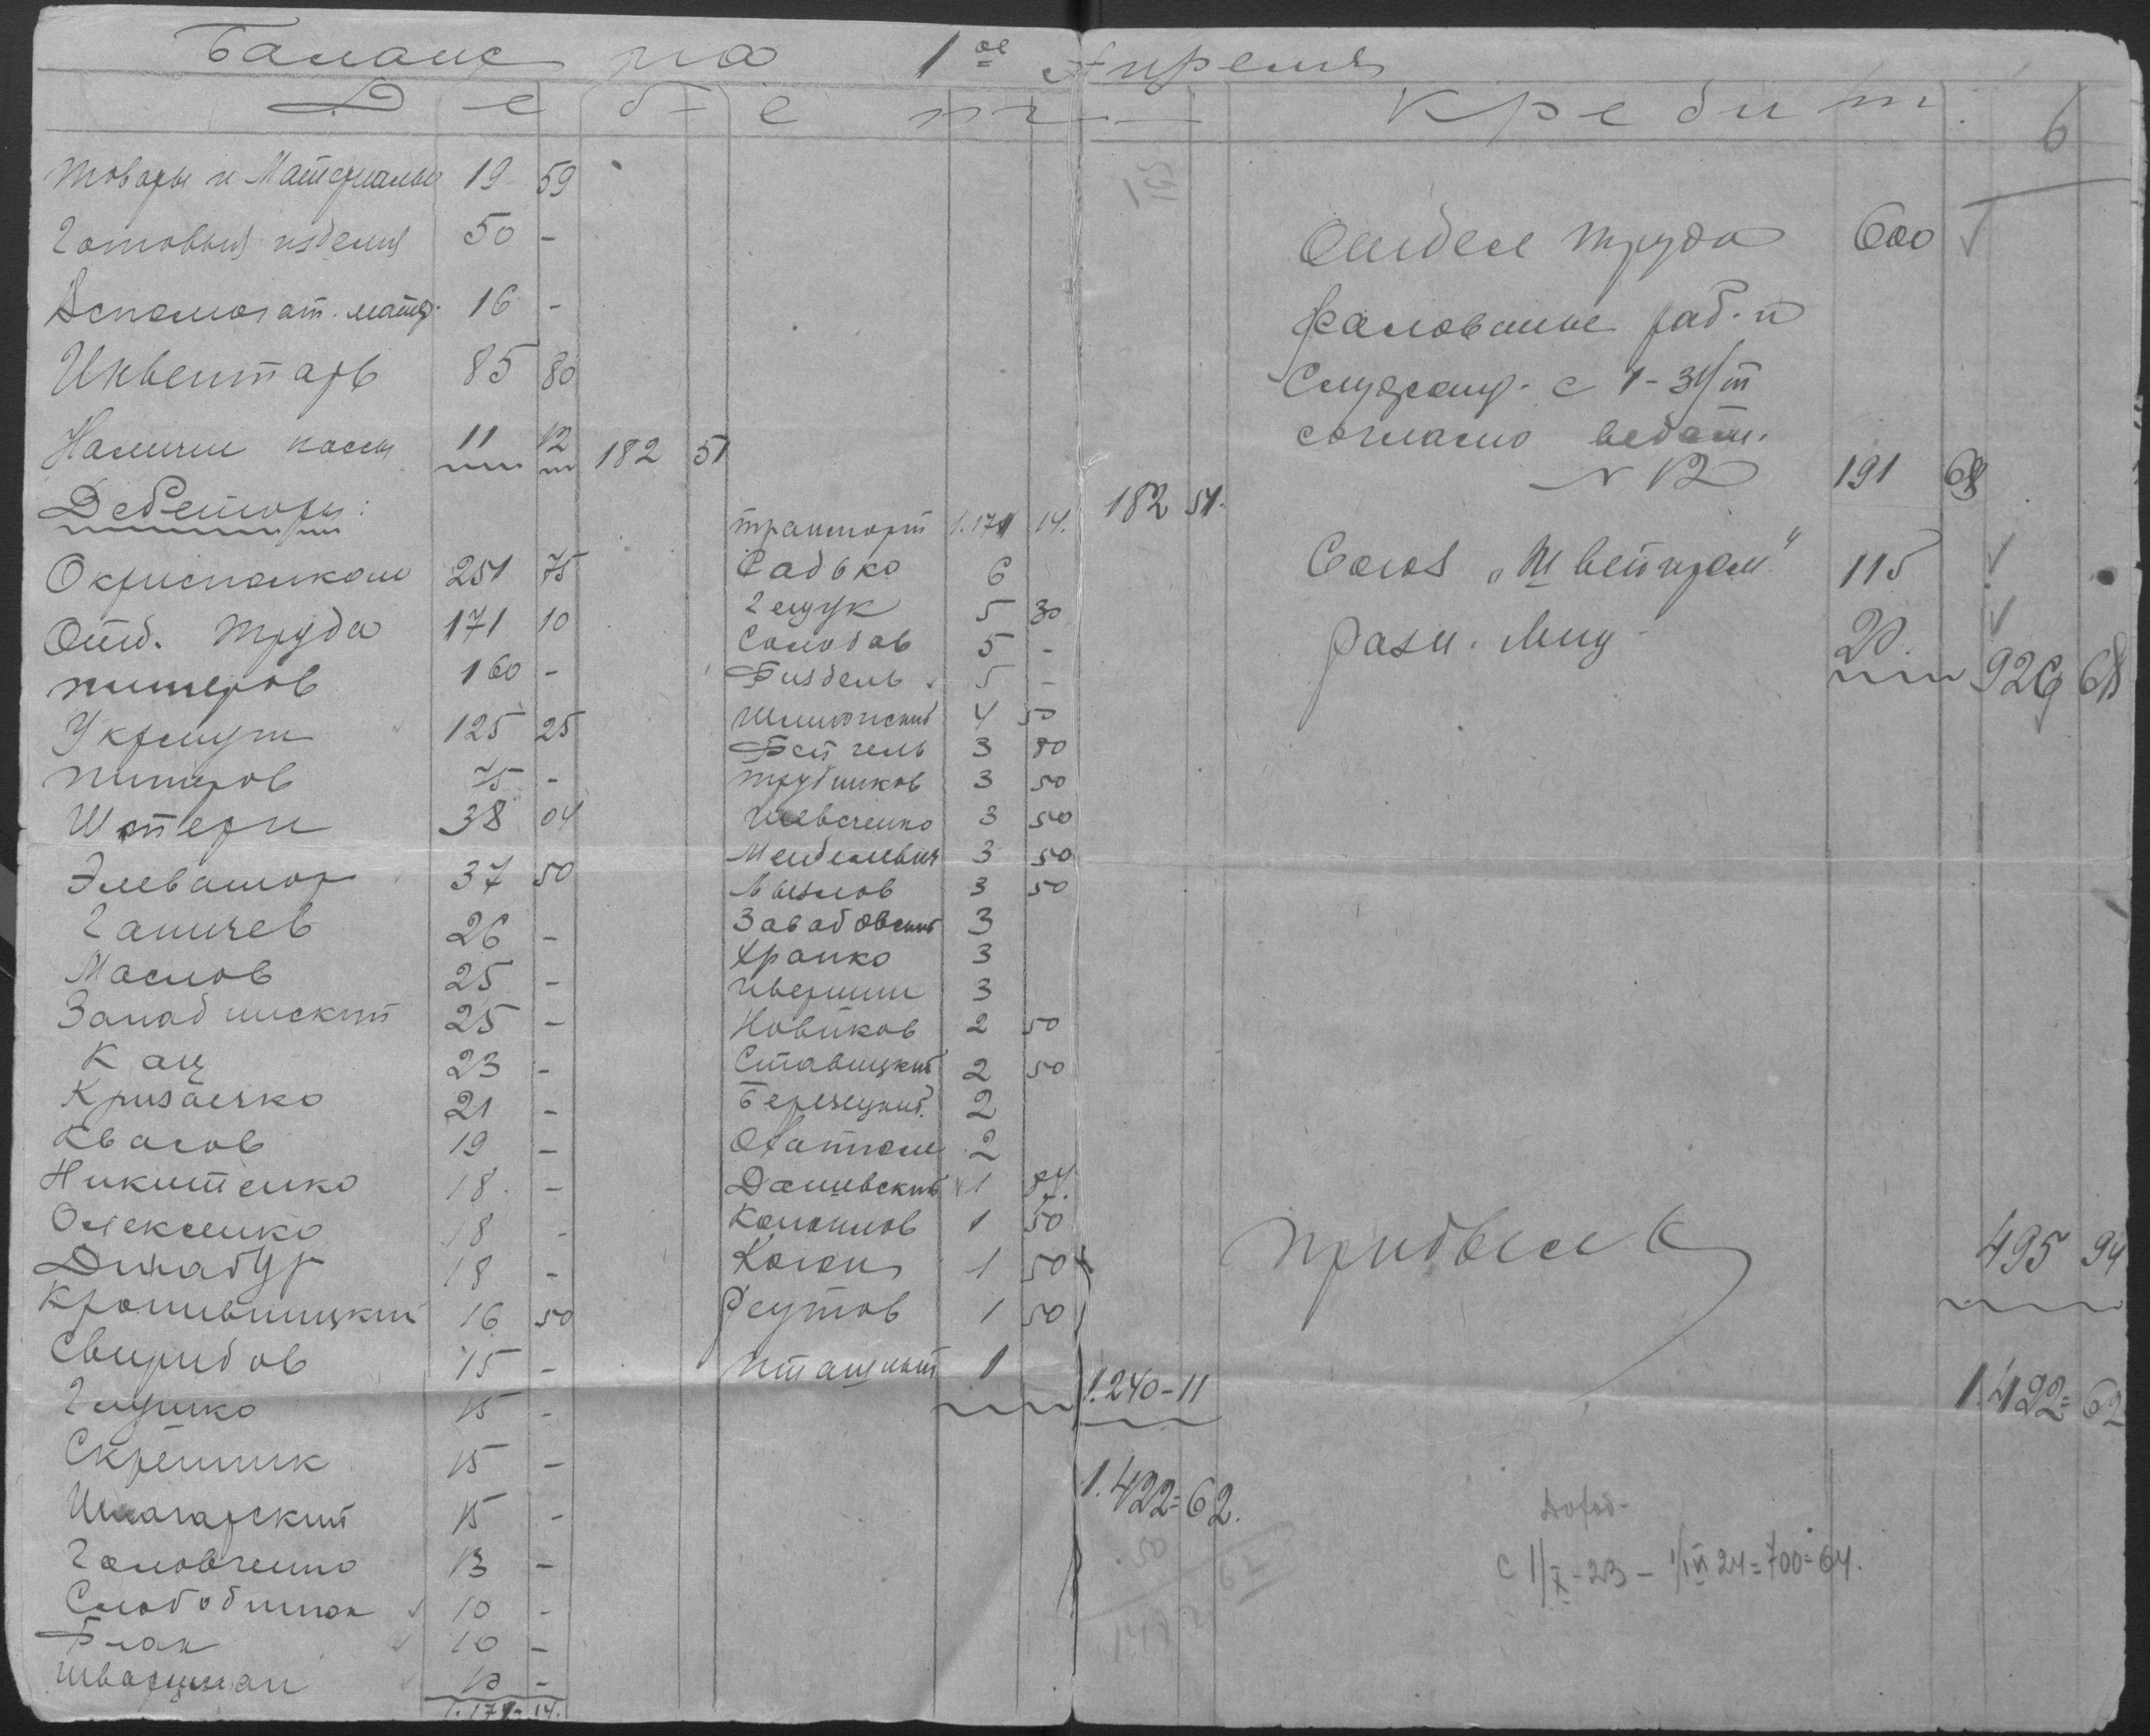 Баланс на 1ое Апреля
Дебет
Товары и Материалы 19 59
Готовыя изделия 50 -
Вспомогат. матер. 16 -
Инвентарь 85 80
Наличие кассы 11 12 182 51
Дебеторы:
Окрисполком 251 75
Отд. Труда 171 10
Питеров 160 -
125 25
Питеров 75 -
Штерн 38 04
Элеватор 37 50
Ганичев 26 -
Маслов 25 -
25 -
Кац 23 -
21 -
Квасов 19 -
Никитенко 18 -
Олексенко 18 -
Динабург 18 -
Кропивницкий 16 50
Свиридов 15 -
Глушко 15 -
Скрепник 15 -
15 -
Головченко 13 -
Слободинск 10 -
Блак 10 -
Шварцман 10 -
1.171-14.
Транспорт 1.171 14. 182 51.
Садько 6
Гещук 5 30
Солодов 5 -
Биздель 5 -
4 50
Бейгель 3 80
Трубников 3 50
Шевченко 3 50
Менделевич 3 50
3 50
Завадовский 3
Храпко 3
Ивершин 3
Новиков 2 50
Ставицкий 2 50
Березецкий 2
2
Дашевский 1 84.
1 50
Коган 1 50
Реутов 1 50
Пташный 1 1.240-11
1.422=62.
Кредит
6
Отдел Труда 600
Жалование раб. и
Служащ. с 1-31/III
согласно ведом.
N 12 191 68
Союз „Швейпром" 115
Разн. Лиц 20 926 68
Прибыль 495 94
1.422=62
Доход-
с 1/X-23 - 1/IV 24=700=64.